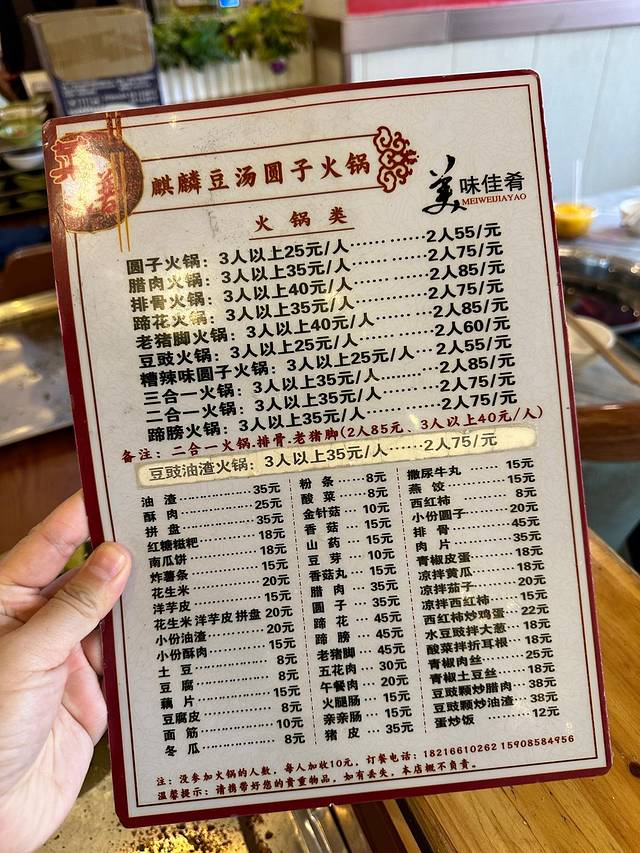 麒麟豆汤圆子火锅
美味佳肴
MEIWEIJIAYAO
火锅类
圆子火锅：3人以上25元/人…………2人55/元
腊肉火锅：3人以上35元/人…………2人75/元
排骨火锅：3人以上40元/人…………2人85/元
蹄花火锅：3人以上35元/人…………2人75/元
老猪脚火锅：3人以上40元/人…………2人85/元
豆豉火锅：3人以上25元/人…………2人60/元
糟辣味圆子火锅：3人以上25元/人…2人55/元
三合一火锅：3人以上35元/人………2人85/元
二合一火锅：3人以上35元/人………2人75/元
蹄膀火锅：3人以上35元/人…………2人75/元
备注：二合一火锅.排骨.老猪脚(2人85元、3人以上40元/人)
豆豉油渣火锅：3人以上35元/人……2人75/元
油渣………35元
酥肉………25元
拼盘………35元
红糖糍粑………18元
南瓜饼………18元
炸薯条………15元
花生米………20元
洋芋皮………15元
花生米洋芋皮拼盘20元
小份油渣………20元
小份酥肉………15元
土豆………8元
豆腐………8元
藕片………15元
豆腐皮………8元
面筋………10元
冬瓜………8元
粉条…8元
酸菜…8元
金针菇…10元
香菇…15元
山药…15元
豆芽…10元
香菇丸…15元
腊肉…35元
圆子…35元
蹄花…45元
蹄膀…45元
老猪脚…45元
五花肉…30元
午餐肉…20元
火腿肠…15元
亲亲肠…15元
猪皮…35元
撒尿牛丸……15元
燕饺……15元
西红柿……8元
小份圆子……20元
排骨……45元
肉片……35元
青椒皮蛋……18元
凉拌黄瓜……18元
凉拌茄子……20元
凉拌西红柿……15元
西红柿炒鸡蛋…22元
水豆豉拌大葱…18元
酸菜拌折耳根…18元
青椒肉丝……25元
青椒土豆丝……18元
豆豉颗炒腊肉…38元
豆豉颗炒油渣…38元
蛋炒饭………12元
注：没参加火锅的人数，每人加收10元，订餐电话：18216610262 15908584956
温馨提示：请携带好您的贵重物品，如有丢失，本店概不负责。